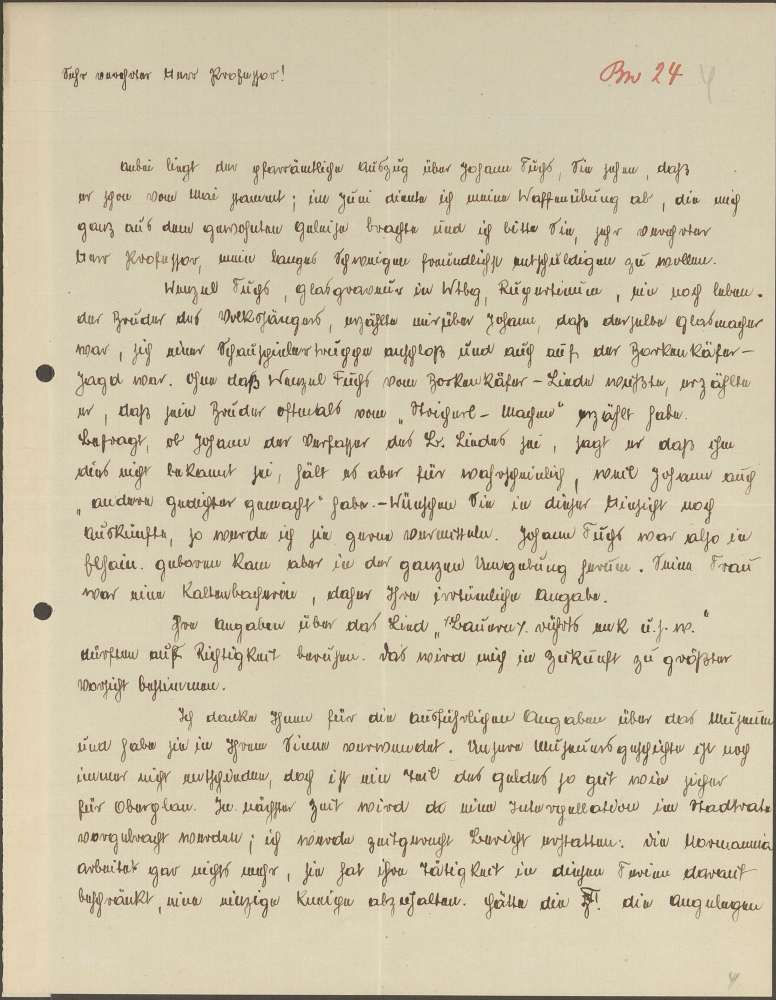 Sehr verehrter Herr Professor!
Bw 24 4
Anbei liegt der pfarrämtliche Auszug über Johann Fuchs, Sie sehen, daß
er schon vom Mai stammt; im Juni diente ich meine Waffenübung ab, die mich
ganz aus dem gewohnten Geleise brachte und ich bitte Sie, sehr verehrter
Herr Professor, mein langes Schweigen freundlichst entschuldigen zu wollen.
Wenzel Fuchs, Glasgraveur in Wtbg, Rupertinum, ein noch leben-
der Bruder des Volkssängers, erzählte mir über Johann, daß derselbe Glasmacher
war, sich einer Schauspielertruppe anschloß und auch auf der Borkenkäfer-
Jagd war. Ohne daß Wenzel Fuchs vom Borkenkäfer-Liede wußte, erzählte
er, daß sein Bruder oftmals vom „Steigerl-Machen" erzählt habe.
Befragt, ob Johann der Verfasser des B. Liedes sei, sagt er daß ihm
dies nicht bekannt sei, hält es aber für wahrscheinlich, weil Johann auch
„andere Gedichter gemacht" habe.- Wünschen Sie in dieser Hinsicht noch
Auskünfte, so werde ich sie gerne vermitteln. Johann Fuchs war also in
geboren kam aber in der ganzen Umgebung herum. Seine Frau
war eine Kaltenbacherin, daher Ihre irrtümliche Angabe.
Ihre Angaben über das Lied „Bauern, rührts enk u.s.w."
dürften auf Richtigkeit beruhen. Das wird mich in Zukunft zu größter
Vorsicht bestimmen.
Ich danke Ihnen für die ausführlichen Angaben über das Museum
und habe sie in Ihrem Sinne verwendet. Unsere Museumsgeschichte ist noch
immer nicht entschieden, doch ist ein Teil des Geldes so gut wie sicher
für Oberplan. In nächster Zeit wird da eine Interpellation im Stadtrate
vorgebracht werden; ich werde zeitgerecht Bericht erstatten. Die Normannia
arbeitet gar nichts mehr, sie hat ihre Tätigkeit in diesen Ferien darauf
beschränkt, eine einzige Kneipe abzuhalten. Hätte die die Angelegen
4